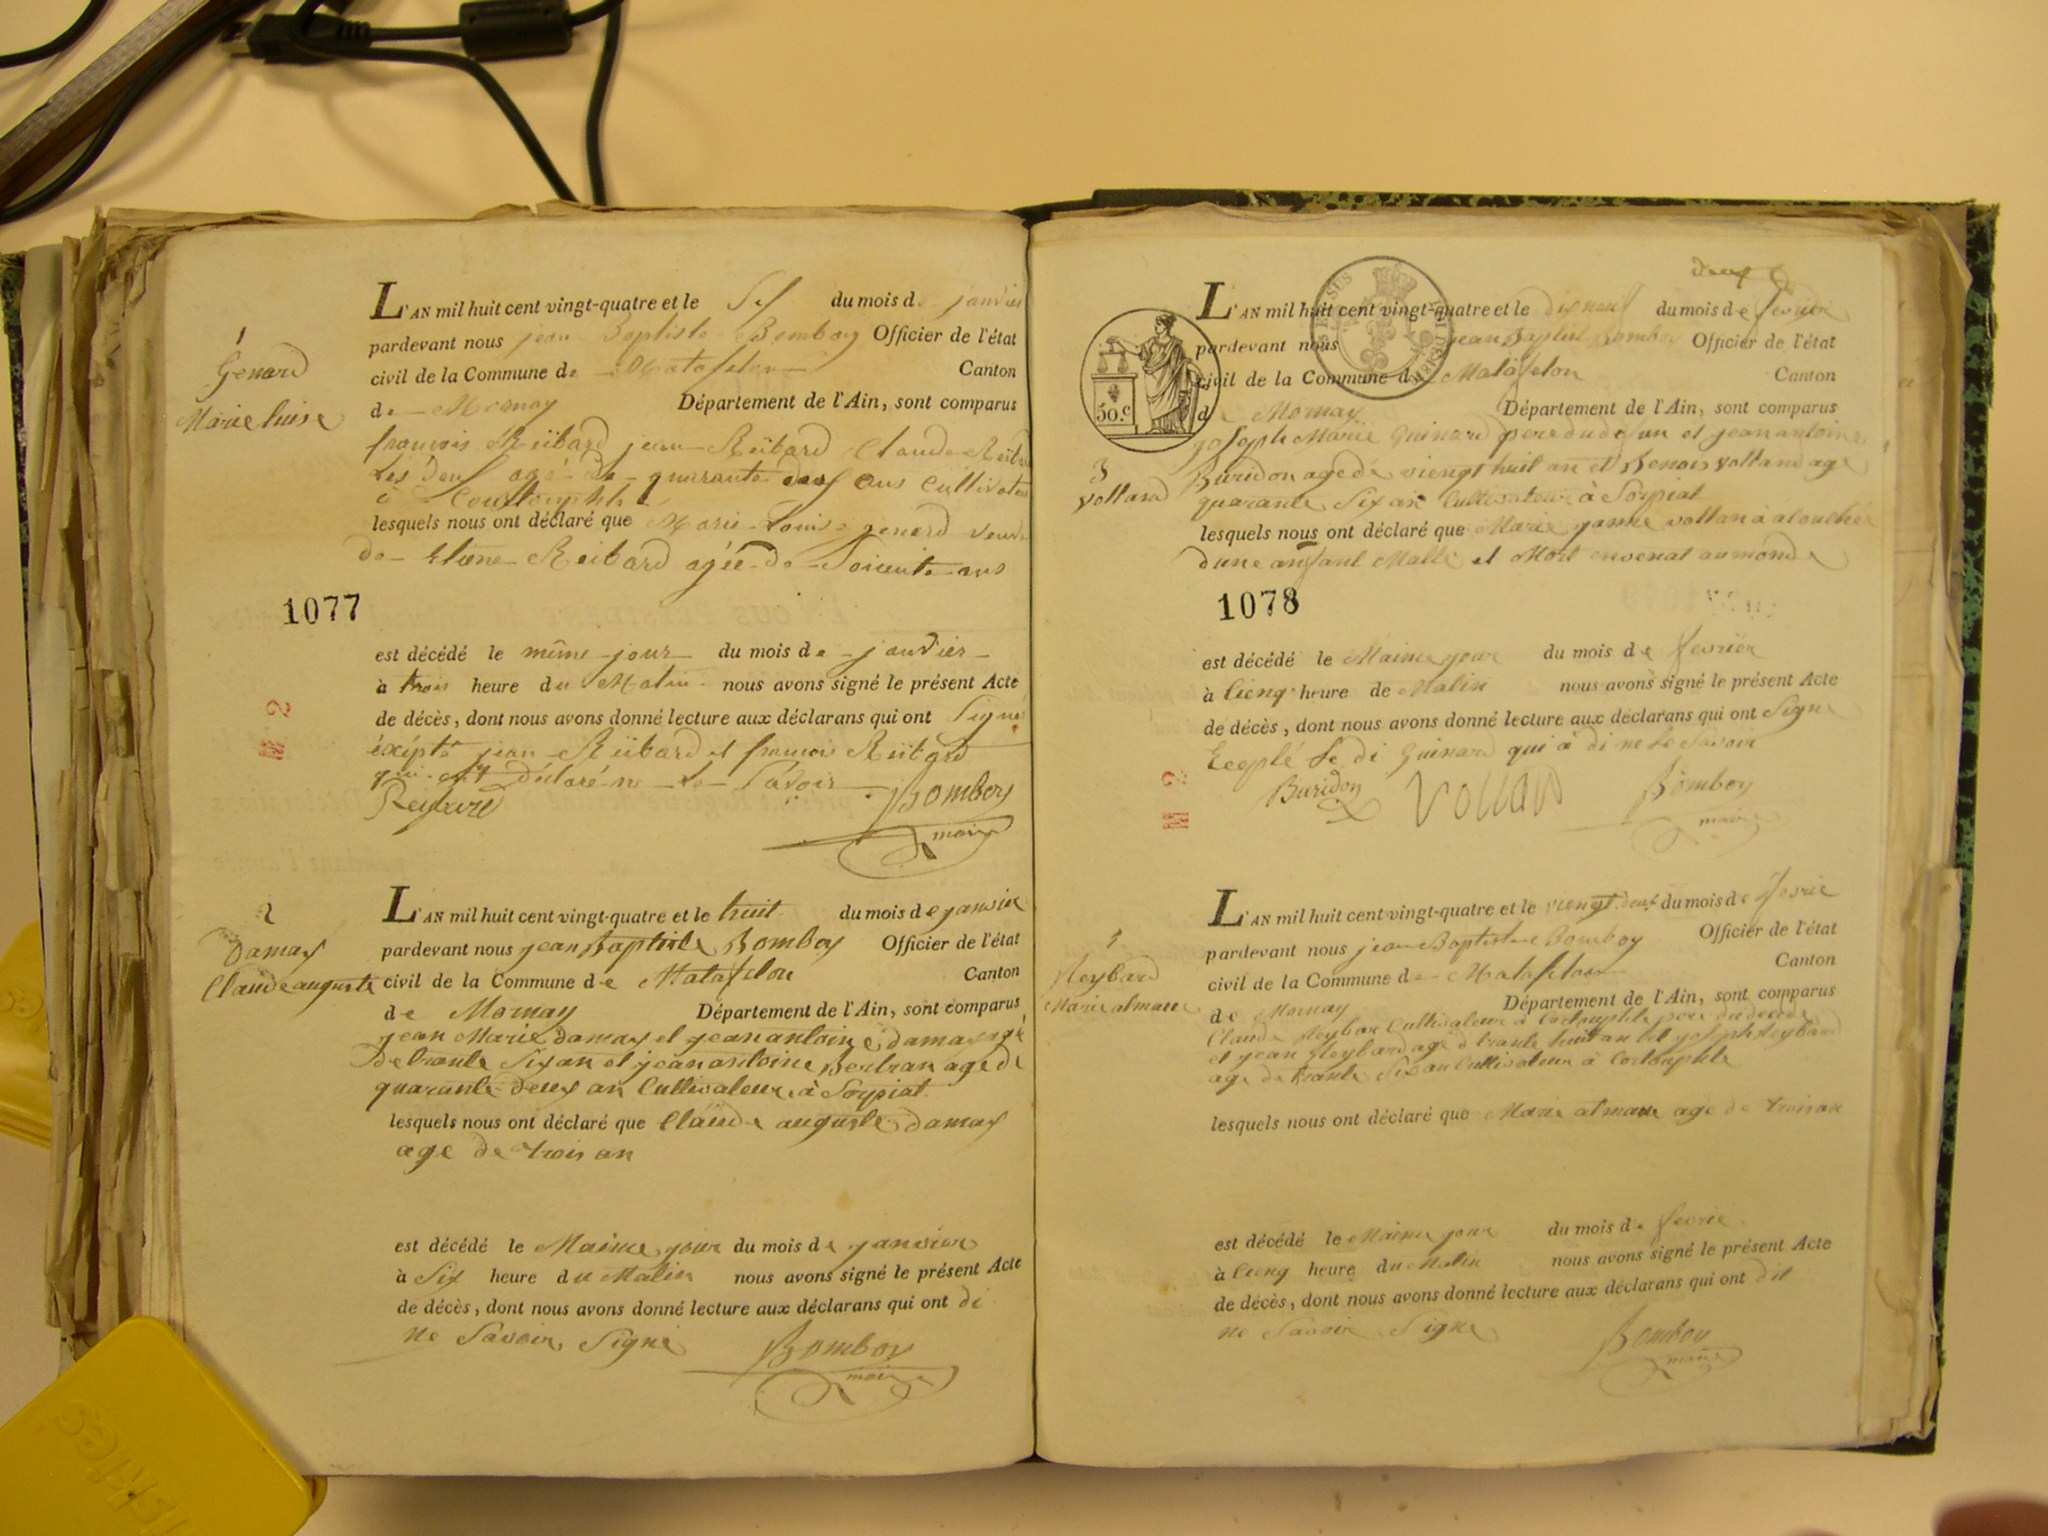 1
Genard
Marie luise
L'AN mil huit cent vingt-quatre et le Sef du mois de janvier
pardevant nous jean Baptiste Bomboy Officier de l'état
civil de la Commune de Matafelon Canton
de Mornay Département de l'Ain, sont comparus
francois Reibard jean Reibard Claude
Les deuf agé de quarante deuf ans Cultivateur
à
lesquels nous ont déclaré que Marie Louise genard veuve
de Etiene Reibard agée de Soicente ans
1077
est décédé le même jour du mois de janvier
à trois heure du Matin nous avons signé le présent Acte
de décès, dont nous avons donné lecture aux déclarans qui ont Signé
éxépté jean Reibard et francois Reibard
qui ont déclaré ne Le Savoir
Bomboy
maire
2
Damas
Claude auguste
L'AN mil huit cent vingt-quatre et le huit du mois de janvier
pardevant nous jean Baptiste Bomboy Officier de l'état
civil de la Commune de Matafelon Canton
de Mornay Département de l'Ain, sont comparus
jean Marie Damas et jean antoine damas agé
De trante Six an et jean antoine Bertran age de
quarante Deux an Cultivateur à Sorpiat
lesquels nous ont déclaré que Claude auguste damas
age de trois an
est décédé le Maime jour du mois de janvier
à Six heure du Matin nous avons signé le présent Acte
de décès, dont nous avons donné lecture aux déclarans qui ont di
ne Savoir Signé
Bomboy
maire
50.c
3
Volland
L'AN mil huit cent vingt-quatre et le dix neuf du mois de fevrier
pardevant nous jean Baptiste Bomboy Officier de l'état
civil de la Commune de Matafelon Canton
de Mornay Département de l'Ain, sont comparus
joseph Marie Guinard pere du defun et jean antoine
Buridon age de viengt huit an et Benois Volland age
quarante Six an Cultivateur à Sorpiat
lesquels nous ont déclaré que Marie janne vollan à alouchée
dune anfant Malle et Mort en venat au monde
1078
est décédé le Maime jour du mois de fevrier
à Cienq heure de Matin nous avons signé le présent Acte
de décès, dont nous avons donné lecture aux déclarans qui ont Signe
Ecepté le di Guinard qui à di ne le Savoir
Buridon Vollan Bomboy
maire
Reybard
Marie almane
L'AN mil huit cent vingt-quatre et le viengt deux du mois de fevrie
pardevant nous jean Baptiste Bomboy Officier de l'état
civil de la Commune de Matafelon Canton
de Mornay Département de l'Ain, sont comparus
Claude Reybar Cultivateur à Cortouphle pere du
et jean Reybard age d trante huit an et joseph Reybard
age de trante Six an Cultivateur à Cortouphle
lesquels nous ont déclaré que Marie almane age de trois an
est décédé le Maime jour du mois de fevrie
à Cienq heure du Matin nous avons signé le présent Acte
de décès, dont nous avons donné lecture aux déclarans qui ont dit
ne Savoir Signe
Bomboy
maire